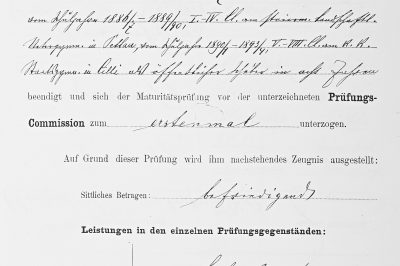 vom Schuljahre 1886/7 – 1889/90, I.–IV. Cl. am steierm. landschaftl.
Untergymn. in Pettau, vom Schuljahre 1890/1 – 1893/4, V.–VIII. Cl. am k. k.
Staatsgymn. in Cilli als öffentlicher Schüler in acht Jahren
beendigt und sich der Maturitätsprüfung vor der unterzeichneten Prüfungs-
Commission zum erstenmal unterzogen.
Auf Grund dieser Prüfung wird ihm nachstehendes Zeugnis ausgestellt:
Sittliches Betragen: befriedigend
Leistungen in den einzelnen Prüfungsgegenständen: